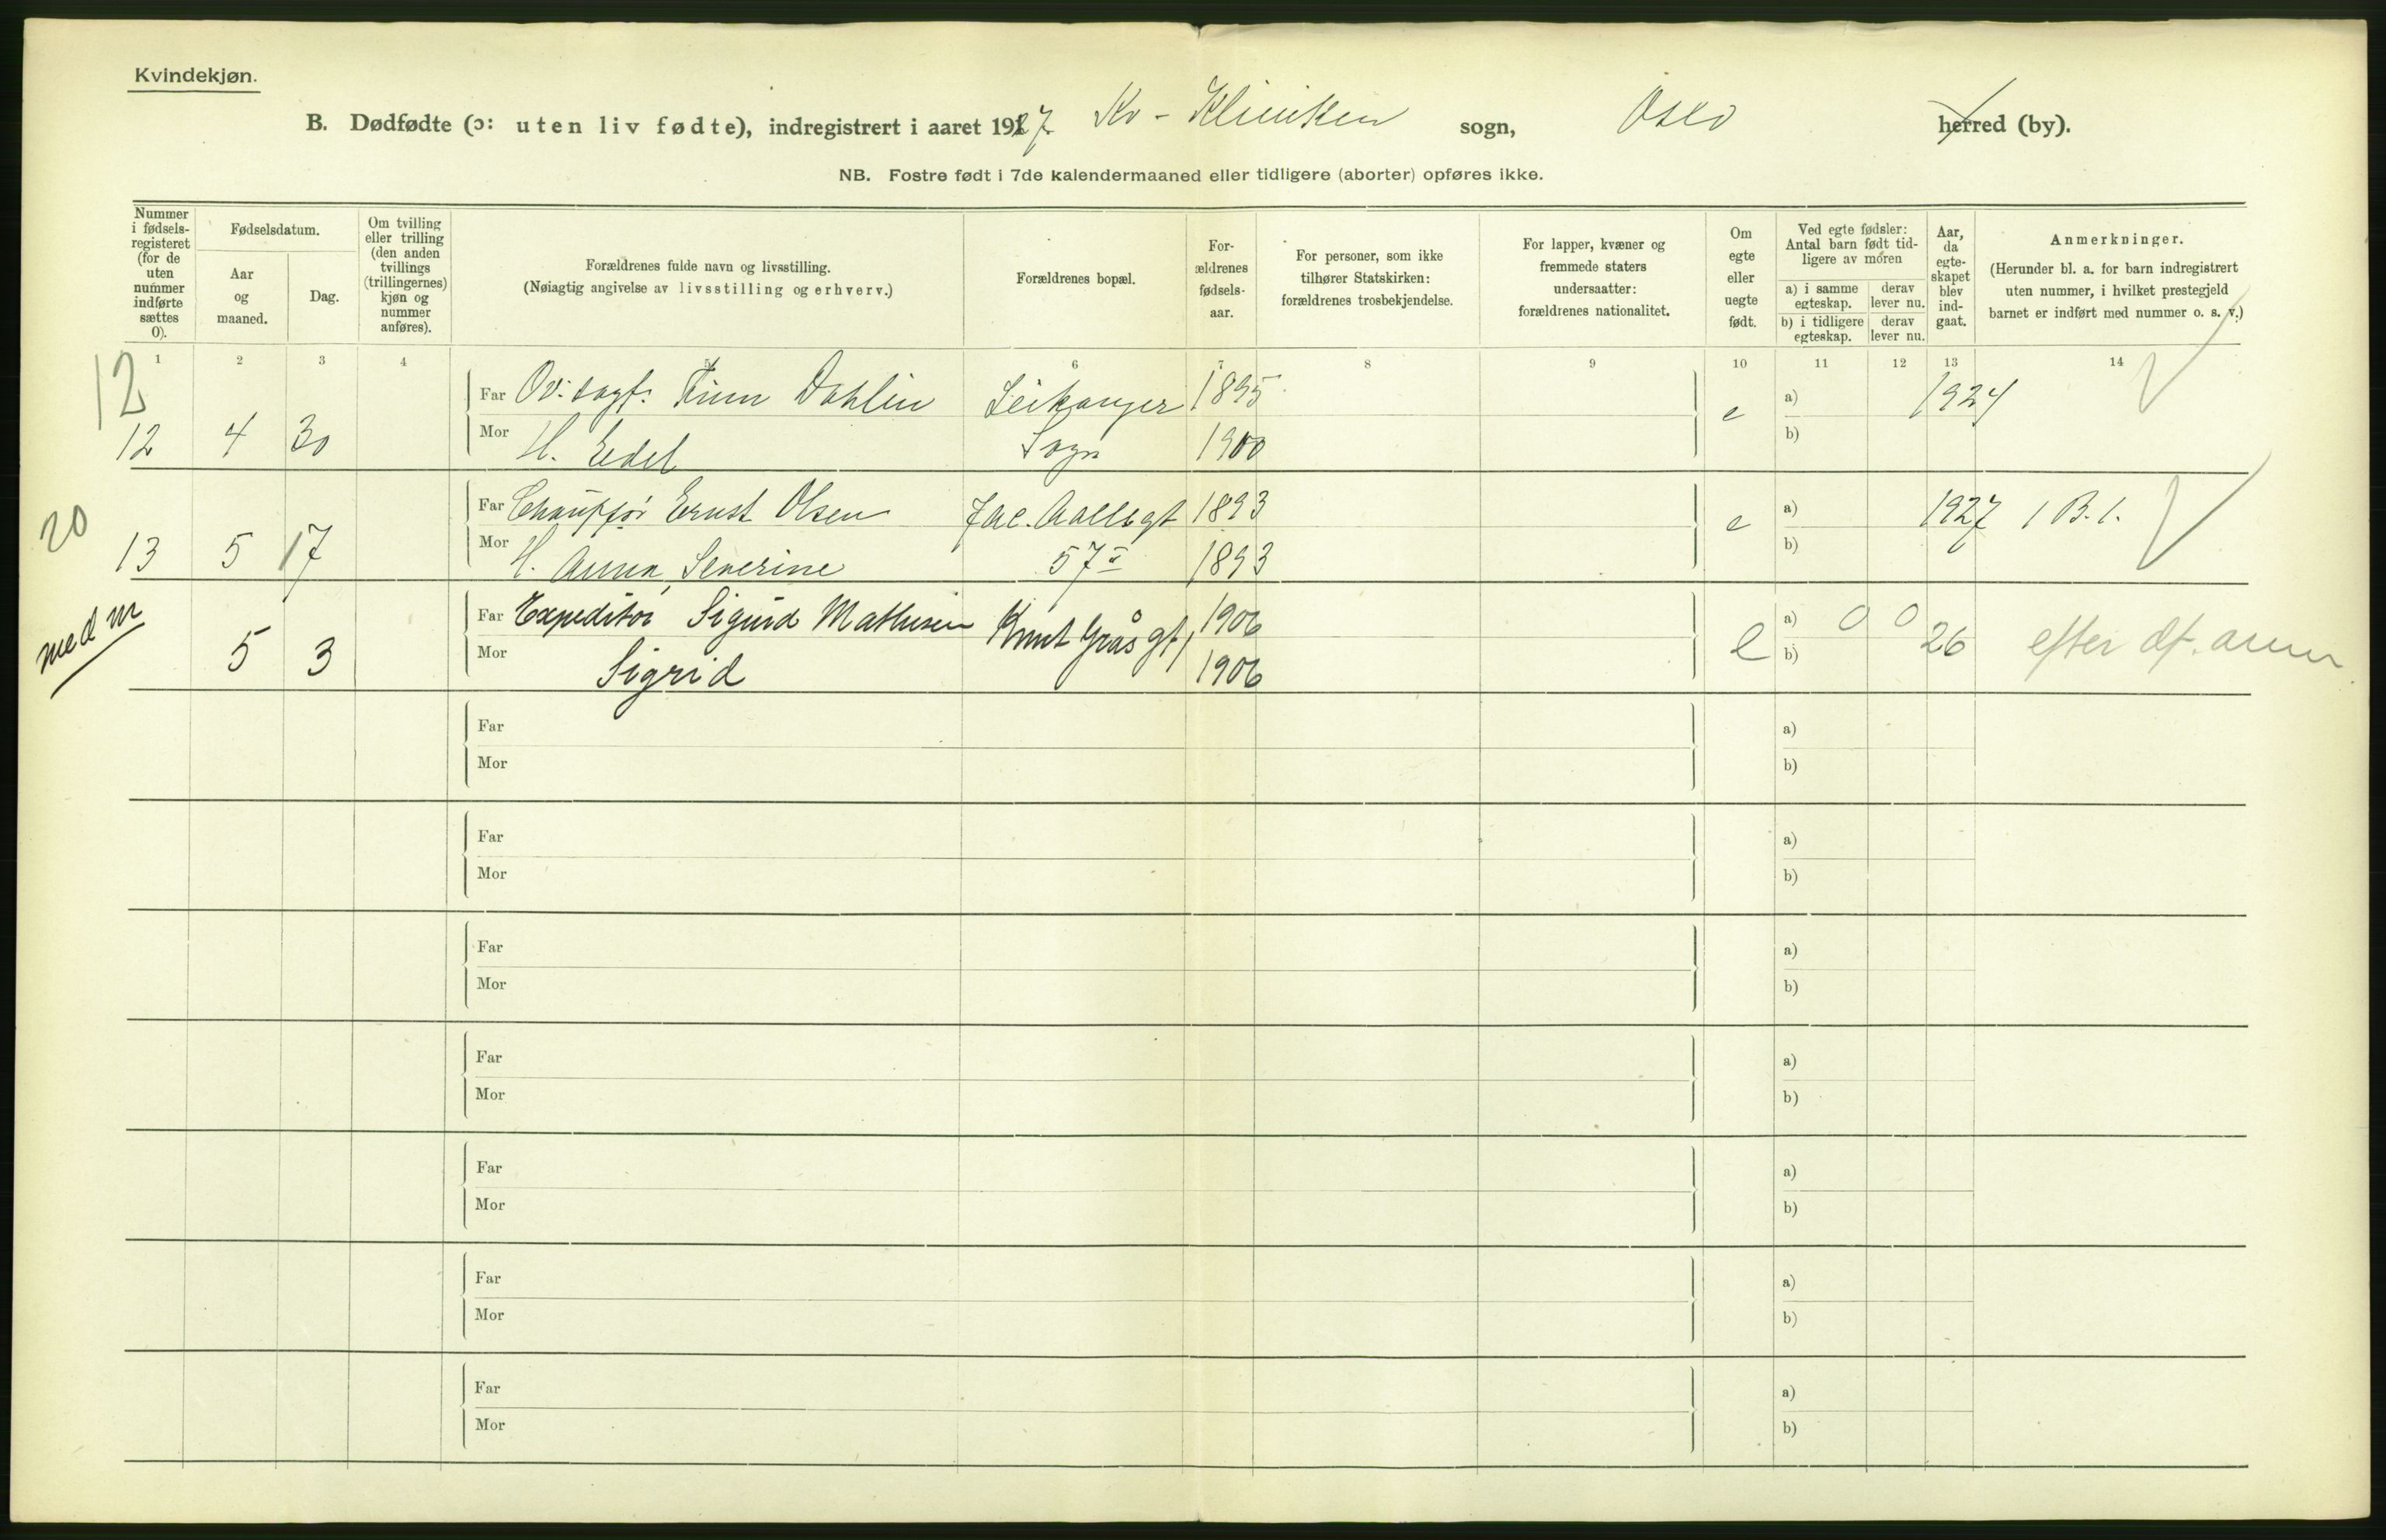 Kvindekjøn.
B. Dødfødte (ɔ: uten liv fødte), indregistrert i aaret 1927 Kv-Kliniken sogn, Oslo herred (by).
NB. Fostre født i 7de kalendermaaned eller tidligere (aborter) opføres ikke.
Nummer i fødsels-registeret (for de uten nummer indførte sættes 0).
Fødselsdatum.
Aar og maaned.
Dag.
Om tvilling eller trilling (den anden tvillings (trillingernes) kjøn og nummer anføres).
Forældrenes fulde navn og livsstilling.
(Nøiagtig angivelse av livsstilling og erhverv.)
Forældrenes bopæl.
For-ældrenes fødsels-aar.
For personer, som ikke tilhører Statskirken: forældrenes trosbekjendelse.
For lapper, kvæner og fremmede staters undersaatter: forældrenes nationalitet.
Om egte eller uegte født.
Ved egte fødsler: Antal barn født tid-ligere av moren
a) i samme egteskap.
derav lever nu.
b) i tidligere egteskap.
derav lever nu.
Aar, da egte-skapet blev ind-gaat.
Anmerkninger.
(Herunder bl. a. for barn indregistrert uten nummer, i hvilket prestegjeld barnet er indført med nummer o. s. v.)
1 2 3 4 5 6 7 8 9 10 11 12 13 14
12
Far Ov.sagf. Finn Dahlin Leikanger 1895 a) 1924
12 4 30 Mor H. Edel Sogn 1900 e b)
20
Far Chauffør Ernst Olsen Jac. Aallsgt 1893 a) 1927 1 B. 1.
13 5 17 Mor H. Anna Severine 57 I 1893 e b)
med nr
Far Expeditør Sigurd Mathisen Knut Gråsgt 1 1906 a) 0 0
5 3 Mor Sigrid 1906 e b) 26 efter df. anm
Far a)
Mor b)
Far a)
Mor b)
Far a)
Mor b)
Far a)
Mor b)
Far a)
Mor b)
Far a)
Mor b)
Far a)
Mor b)